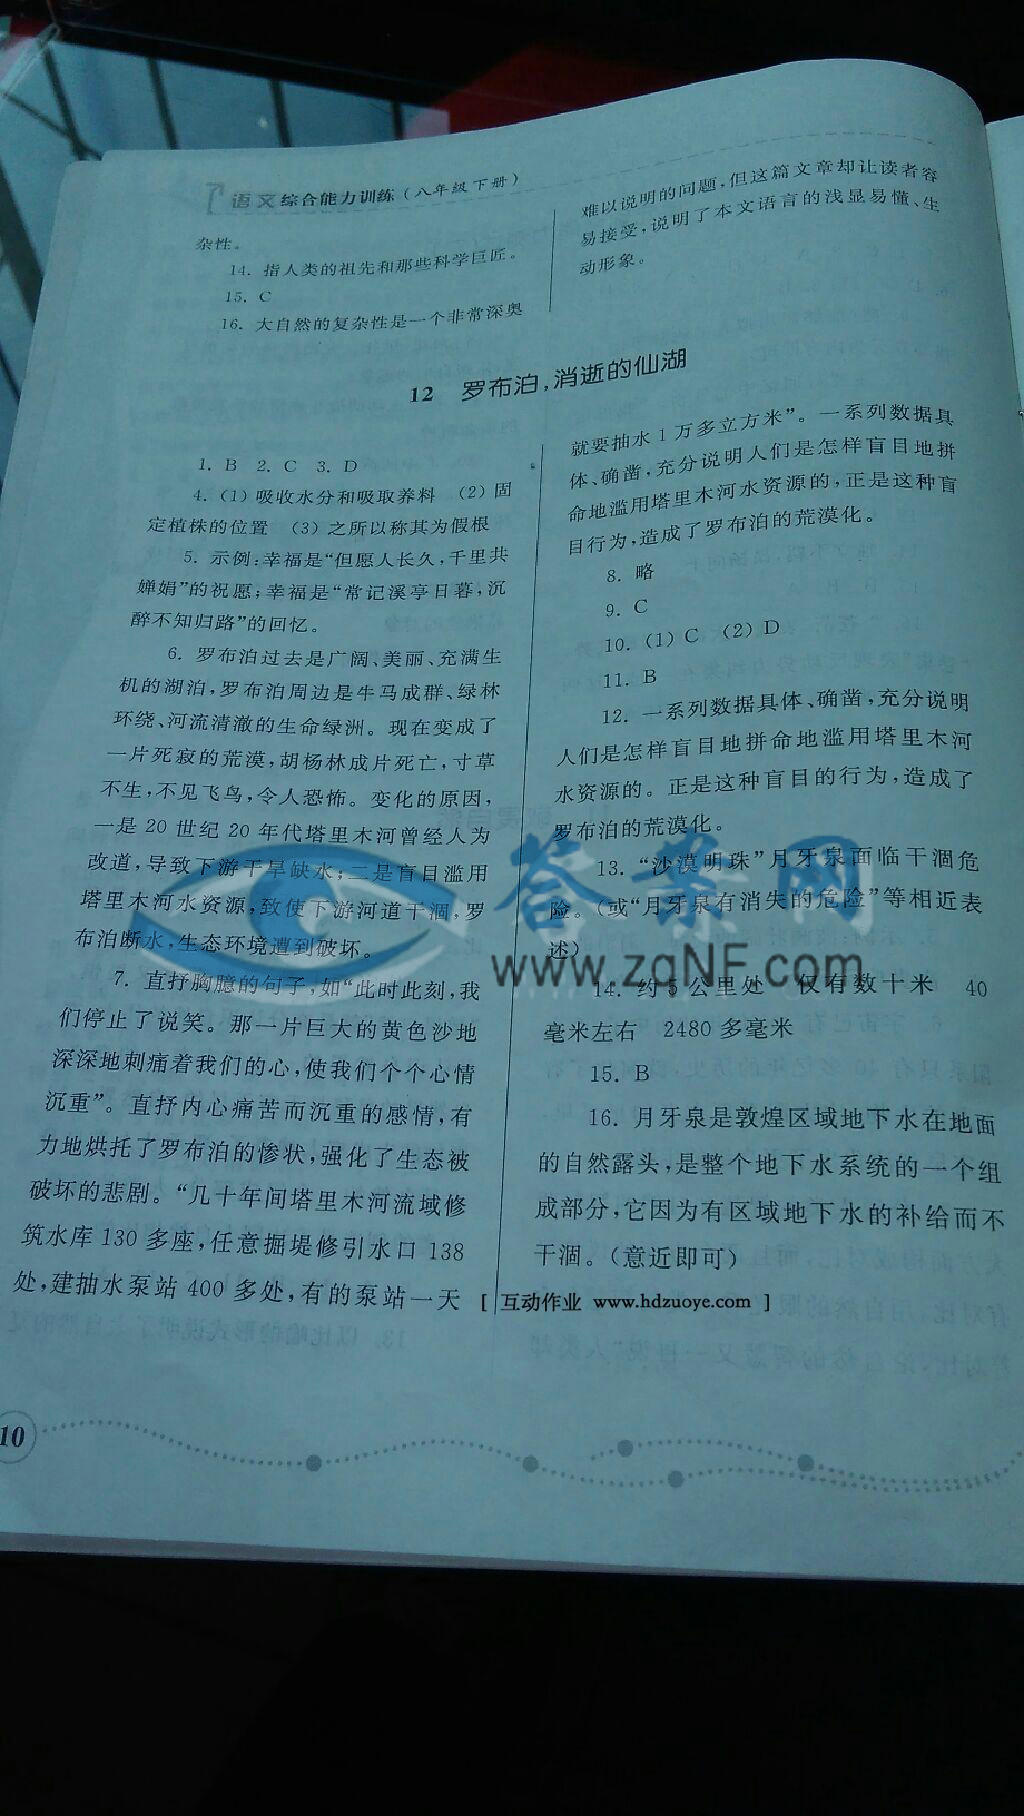 语文综合能力训练（八年级下册）
杂性。
14. 指人类的祖先和那些科学巨匠。
15. C
16. 大自然的复杂性是一个非常深奥
难以说明的问题，但这篇文章却让读者容
易接受，说明了本文语言的浅显易懂、生
动形象。
12 罗布泊，消逝的仙湖
1. B 2. C 3. D
4. (1) 吸收水分和吸取养料 (2) 固
定植株的位置 (3) 之所以称其为假根
5. 示例：幸福是“但愿人长久，千里共
婵娟”的祝愿；幸福是“常记溪亭日暮，沉
醉不知归路”的回忆。
6. 罗布泊过去是广阔、美丽、充满生
机的湖泊，罗布泊周边是牛马成群、绿林
环绕、河流清澈的生命绿洲。现在变成了
一片死寂的荒漠，胡杨林成片死亡，寸草
不生，不见飞鸟，令人恐怖。变化的原因，
一是 20 世纪 20 年代塔里木河曾经人为
改道，导致下游干旱缺水；二是盲目滥用
塔里木河水资源，致使下游河道干涸，罗
布泊断水，生态环境遭到破坏。
7. 直抒胸臆的句子，如“此时此刻，我
们停止了说笑。那一片巨大的黄色沙地
深深地刺痛着我们的心，使我们个个心情
沉重”。直抒内心痛苦而沉重的感情，有
力地烘托了罗布泊的惨状，强化了生态被
破坏的悲剧。“几十年间塔里木河流域修
筑水库 130 多座，任意掘堤修引水口 138
处，建抽水泵站 400 多处，有的泵站一天
就要抽水 1 万多立方米”。一系列数据具
体、确凿，充分说明人们是怎样盲目地拼
命地滥用塔里木河水资源的，正是这种盲
目行为，造成了罗布泊的荒漠化。
8. 略
9. C
10. (1) C (2) D
11. B
12. 一系列数据具体、确凿，充分说明
人们是怎样盲目地拼命地滥用塔里木河
水资源的。正是这种盲目的行为，造成了
罗布泊的荒漠化。
13. “沙漠明珠”月牙泉面临干涸危
险。（或“月牙泉有消失的危险”等相近表
述）
14. 约 5 公里处 仅有数十米 40
毫米左右 2480 多毫米
15. B
16. 月牙泉是敦煌区域地下水在地面
的自然露头，是整个地下水系统的一个组
成部分，它因为有区域地下水的补给而不
干涸。（意近即可）
答案网
www.zqNF.com
[ 互动作业 www.hdzuoye.com ]
10